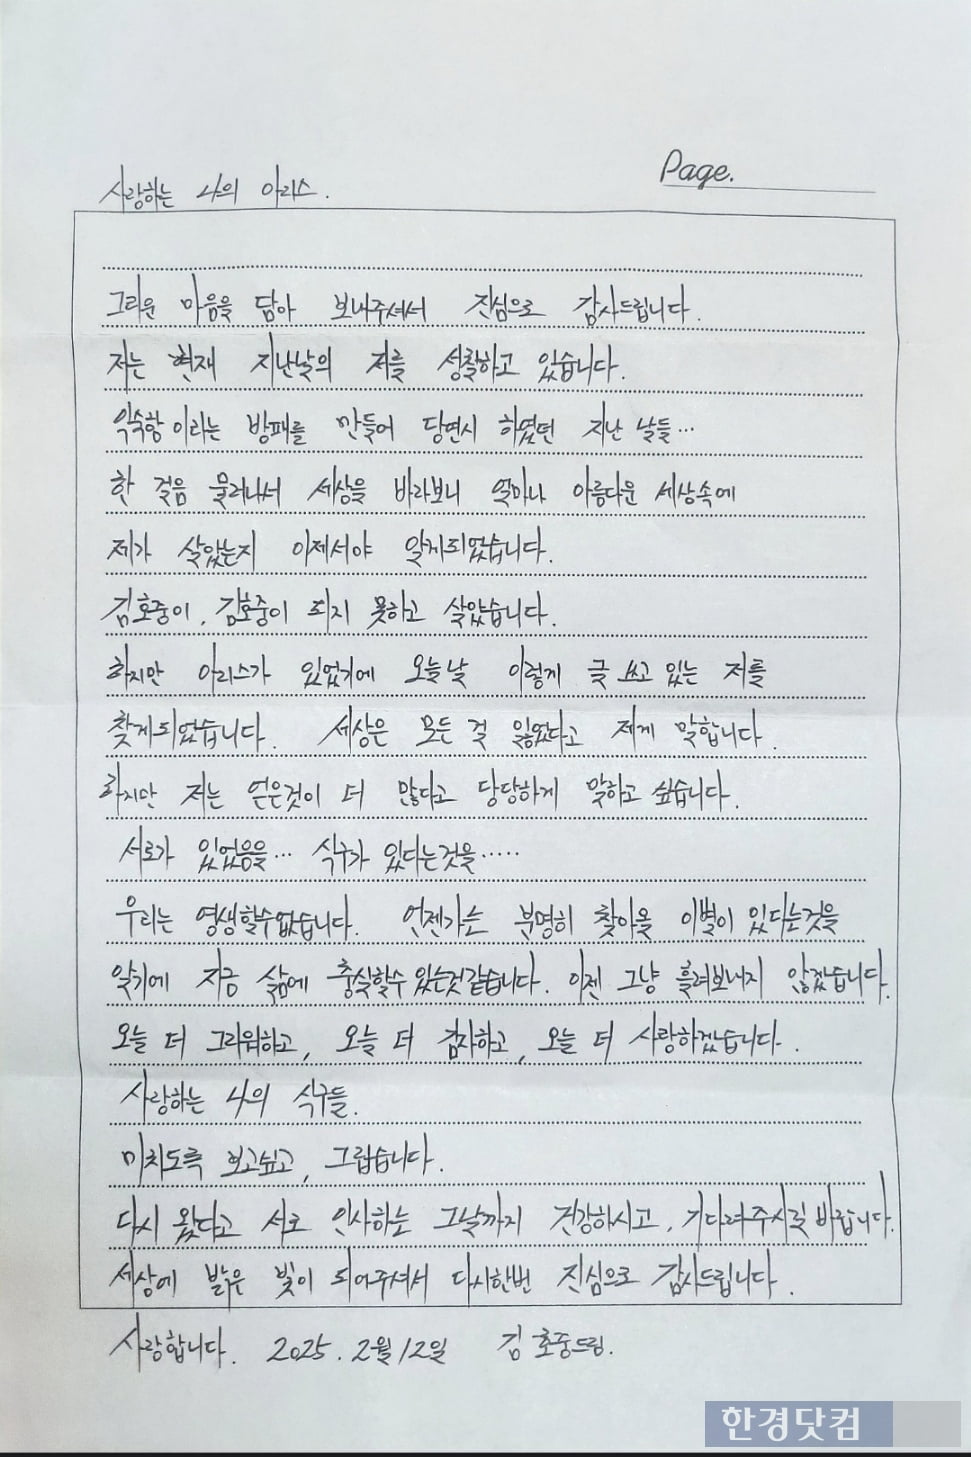 Page.
사랑하는 나의 아리스.
그리운 마음을 담아 보내주셔서 진심으로 감사드립니다.
저는 현재 지난날의 저를 성찰하고 있습니다.
익숙함이라는 방패를 만들어 당연시 하였던 지난 날들...
한 걸음 물러나서 세상을 바라보니 얼마나 아름다운 세상속에
제가 살았는지 이제서야 알게되었습니다.
김호중이, 김호중이 되지 못하고 살았습니다.
하지만 아리스가 있었기에 오늘날 이렇게 글 쓰고 있는 저를
찾게되었습니다. 세상은 모든 걸 잃었다고 제게 말합니다.
하지만 저는 얻은것이 더 많다고 당당하게 말하고 싶습니다.
서로가 있었음을... 식구가 있다는것을.....
우리는 영생할수없습니다. 언젠가는 분명히 찾아올 이별이 있다는것을
알기에 지금 삶에 충실할수 있는것같습니다. 이젠 그냥 흘려보내지 않겠습니다.
오늘 더 그리워하고, 오늘 더 감사하고, 오늘 더 사랑하겠습니다.
사랑하는 나의 식구들.
미치도록 보고싶고, 그립습니다.
다시 왔다고 서로 인사하는 그날까지 건강하시고, 기다려주시길 바랍니다.
세상에 밝은 빛이 되어주셔서 다시한번 진심으로 감사드립니다.
사랑합니다. 2025. 2월 12일 김호중드림.
한경닷컴